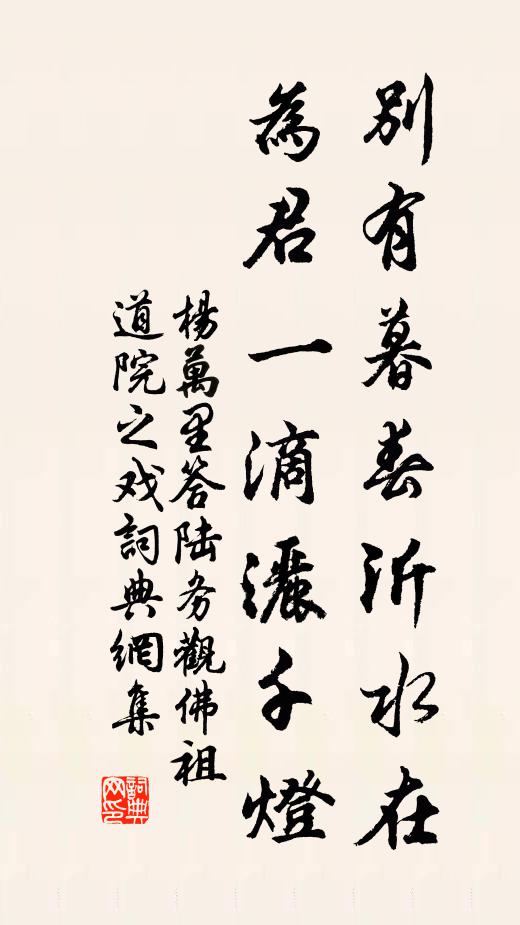 別有暮春沂水在
為君一滴灑千燈
楊萬里答陆务觀佛祖
道院之戏詞典網集
詞典网印